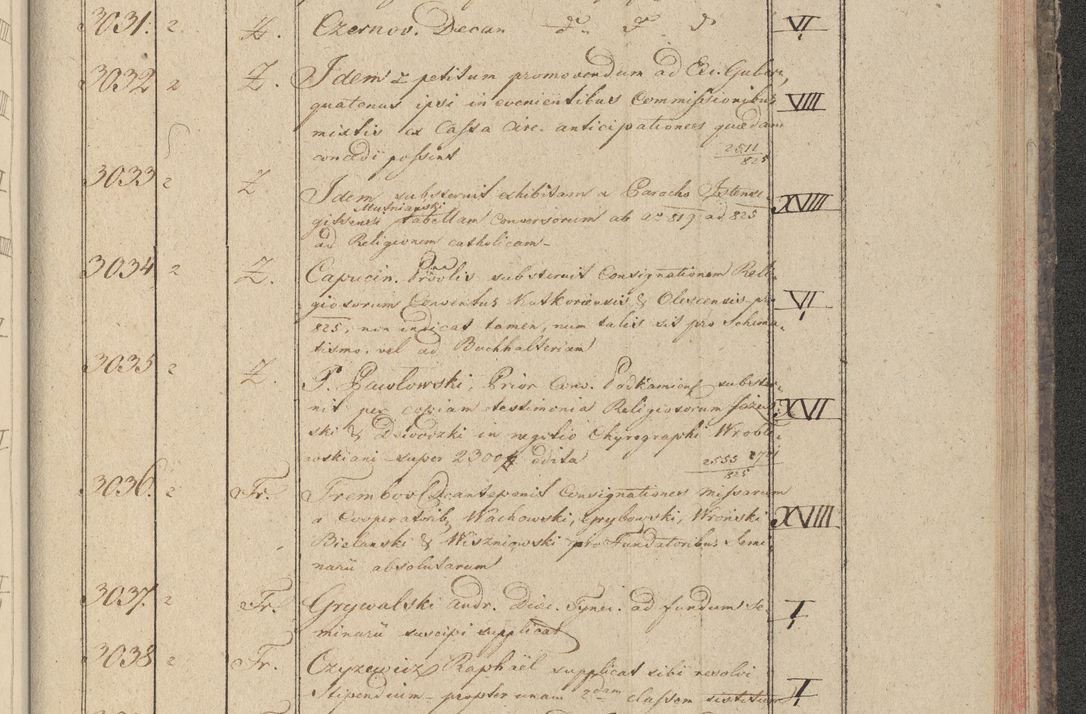 3031. 2 Z. Czernov. Decan dto dto d VI
3032 2 Z. Idem petitum promovendum ad Exc. Gubern.
quatenus ipsi in evenientibus Commissionibus VIII
mixtis ex Cassa Circ. anticipationes quædam
concedi possint 2511/825
3033 2 Z. Idem substernit exhibitam a Parocho XVIII
tabellam conversorum ab ao 819 ad 825
ad Religionem catholicam
3034 2 Z. Capucin. Provlis substernit Consignationem Reli-
giosorum Conventus Kutkoriensis & Olescensis pro VI
825, non indicat tamen, num talis sit pro Schema-
tismo, vel ad Buchhalteriam
3035 2 Z. P. Pawłowski, Prior Conv. Podkamien. subster-
nit per copiam testimonia Religiosorum XVI
ski & Dziwodzki in negotio Chyrographi Wroble-
wskiani super 2300 f edita 2555 2771/825
3036. 2 Fr. Trembov. Dec. anteponit Consignationes missarum
a Cooperatorib. Wachowski, Grybowski, Wroński XVIII
Bielanski & Wiszniowski pro Fundatoribus Semi-
narii absolutarum
3037. 2 Fr. Grywalski Andr. Diœc. Tynec. ad fundum Se- I
minarii suscipi supplicat
3038 2 Fr. Czyzewicz Raphaël supplicat sibi resolvi
Stipendium propter unam 2dam classem I